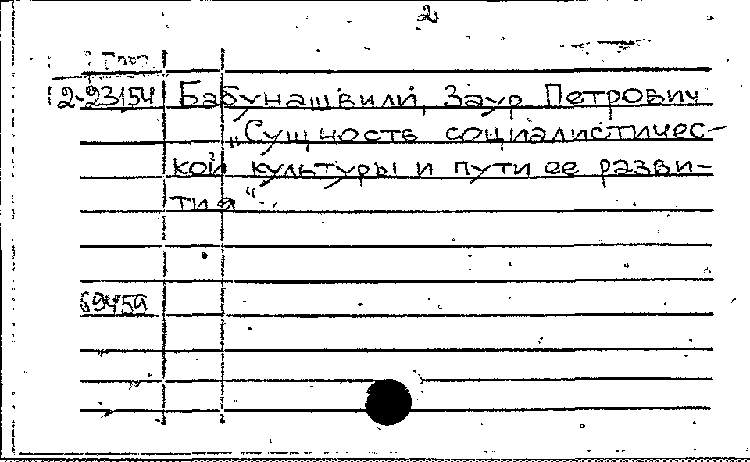 2
2-23154 Бабунашвили, Заур Петрович
„Сущность социалистичес-
кой культуры и пути ее разви-
тия“.
69459